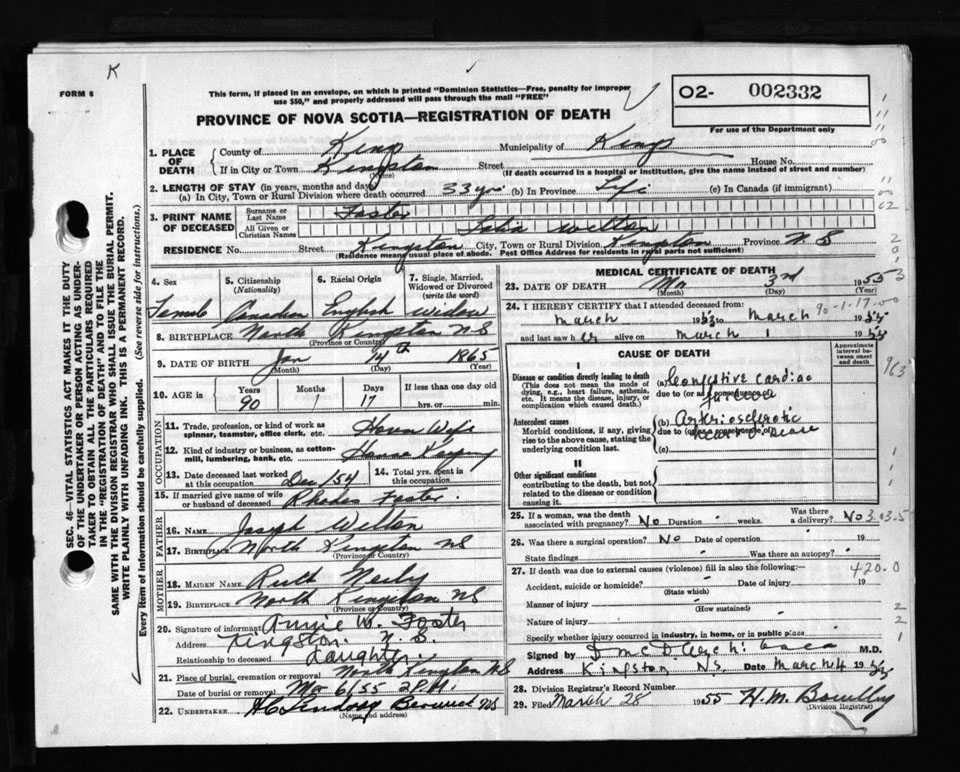 K
FORM 6
This form, if placed in an envelope, on which is printed "Dominion Statistics—Free, penalty for improper
use $50," and properly addressed will pass through the mail "FREE"
O2- 002332
For use of the Department only
PROVINCE OF NOVA SCOTIA—REGISTRATION OF DEATH
1. PLACE OF DEATH
County of Kings Municipality of Kings
If in City or Town Kingston Street House No.
(Name) (If death occurred in a hospital or institution, give the name instead of street and number)
2. LENGTH OF STAY (in years, months and days)
(a) In City, Town or Rural Division where death occurred 33 yrs (b) In Province Life (c) In Canada (if immigrant)
3. PRINT NAME OF DECEASED
Surname or Last Name Foster
All Given or Christian Names Welton
RESIDENCE No. Street Kingston City, Town or Rural Division Kingston Province N S
(Residence means usual place of abode. Post Office Address for residents in rural parts not sufficient)
4. Sex 5. Citizenship (Nationality) 6. Racial Origin 7. Single, Married, Widowed or Divorced (write the word)
Female Canadian English Widow
8. BIRTHPLACE North Kingston NS
(Province or Country)
9. DATE OF BIRTH Jan 14th 1865
(Month) (Day) (Year)
10. AGE in Years Months Days If less than one day old
90 1 17 hrs. or min.
OCCUPATION
11. Trade, profession, or kind of work as spinner, teamster, office clerk, etc. House Wife
12. Kind of industry or business, as cotton-mill, lumbering, bank, etc. House Keeping
13. Date deceased last worked at this occupation Dec/54 14. Total yrs. spent in this occupation
15. If married give name of wife or husband of deceased Rhodes Foster
FATHER
16. NAME Joseph Welton
17. BIRTHPLACE North Kingston NS
(Province or Country)
MOTHER
18. MAIDEN NAME Ruth
19. BIRTHPLACE North Kingston NS
(Province or Country)
20. Signature of informant Annie W. Foster
Address Kingston N. S.
Relationship to deceased Daughter
21. Place of burial, cremation or removal North Kingston NS
Date of burial or removal Mar 6/55 2 P.M.
22. UNDERTAKER H C Lindsay Berwick NS
(Name and address)
MEDICAL CERTIFICATE OF DEATH
23. DATE OF DEATH Mar 3rd 1955
(Month) (Day) (Year)
24. I HEREBY CERTIFY that I attended deceased from: 90-1-17-00
March 19 to March 1955
and last saw her alive on March 1 1955
CAUSE OF DEATH
Approximate interval between onset and death
I
Disease or condition directly leading to death
(This does not mean the mode of dying, e.g., heart failure, asthenia, etc. It means the disease, injury, or complication which caused death.)
(a) Congestive cardiac failure
due to (or as a consequence of)
Antecedent causes
Morbid conditions, if any, giving rise to the above cause, stating the underlying condition last.
(b) Arteriosclerotic heart disease
due to (or as a consequence of)
(c)
II
Other significant conditions
contributing to the death, but not related to the disease or condition causing it.
25. If a woman, was the death associated with pregnancy? No Duration weeks. Was there a delivery? No
26. Was there a surgical operation? No Date of operation 19
State findings Was there an autopsy?
27. If death was due to external causes (violence) fill in also the following:— 420.0
Accident, suicide or homicide? Date of injury 19
(State which)
Manner of injury
(How sustained)
Nature of injury
Specify whether injury occurred in industry, in home, or in public place
Signed by M.D.
Address Kingston, N.S. Date March 4 1955
28. Division Registrar's Record Number
29. Filed March 28 1955 H. M. Bowlby
(Division Registrar)
SEC. 46–VITAL STATISTICS ACT MAKES IT THE DUTY
OF THE UNDERTAKER OR PERSON ACTING AS UNDER-
TAKER TO OBTAIN ALL THE PARTICULARS REQUIRED
IN THE "REGISTRATION OF DEATH" AND TO FILE THE
SAME WITH THE DIVISION REGISTRAR WHO SHALL ISSUE THE BURIAL PERMIT.
WRITE PLAINLY WITH UNFADING INK. THIS IS A PERMANENT RECORD.
Every item of information should be carefully supplied. (See reverse side for instructions.)